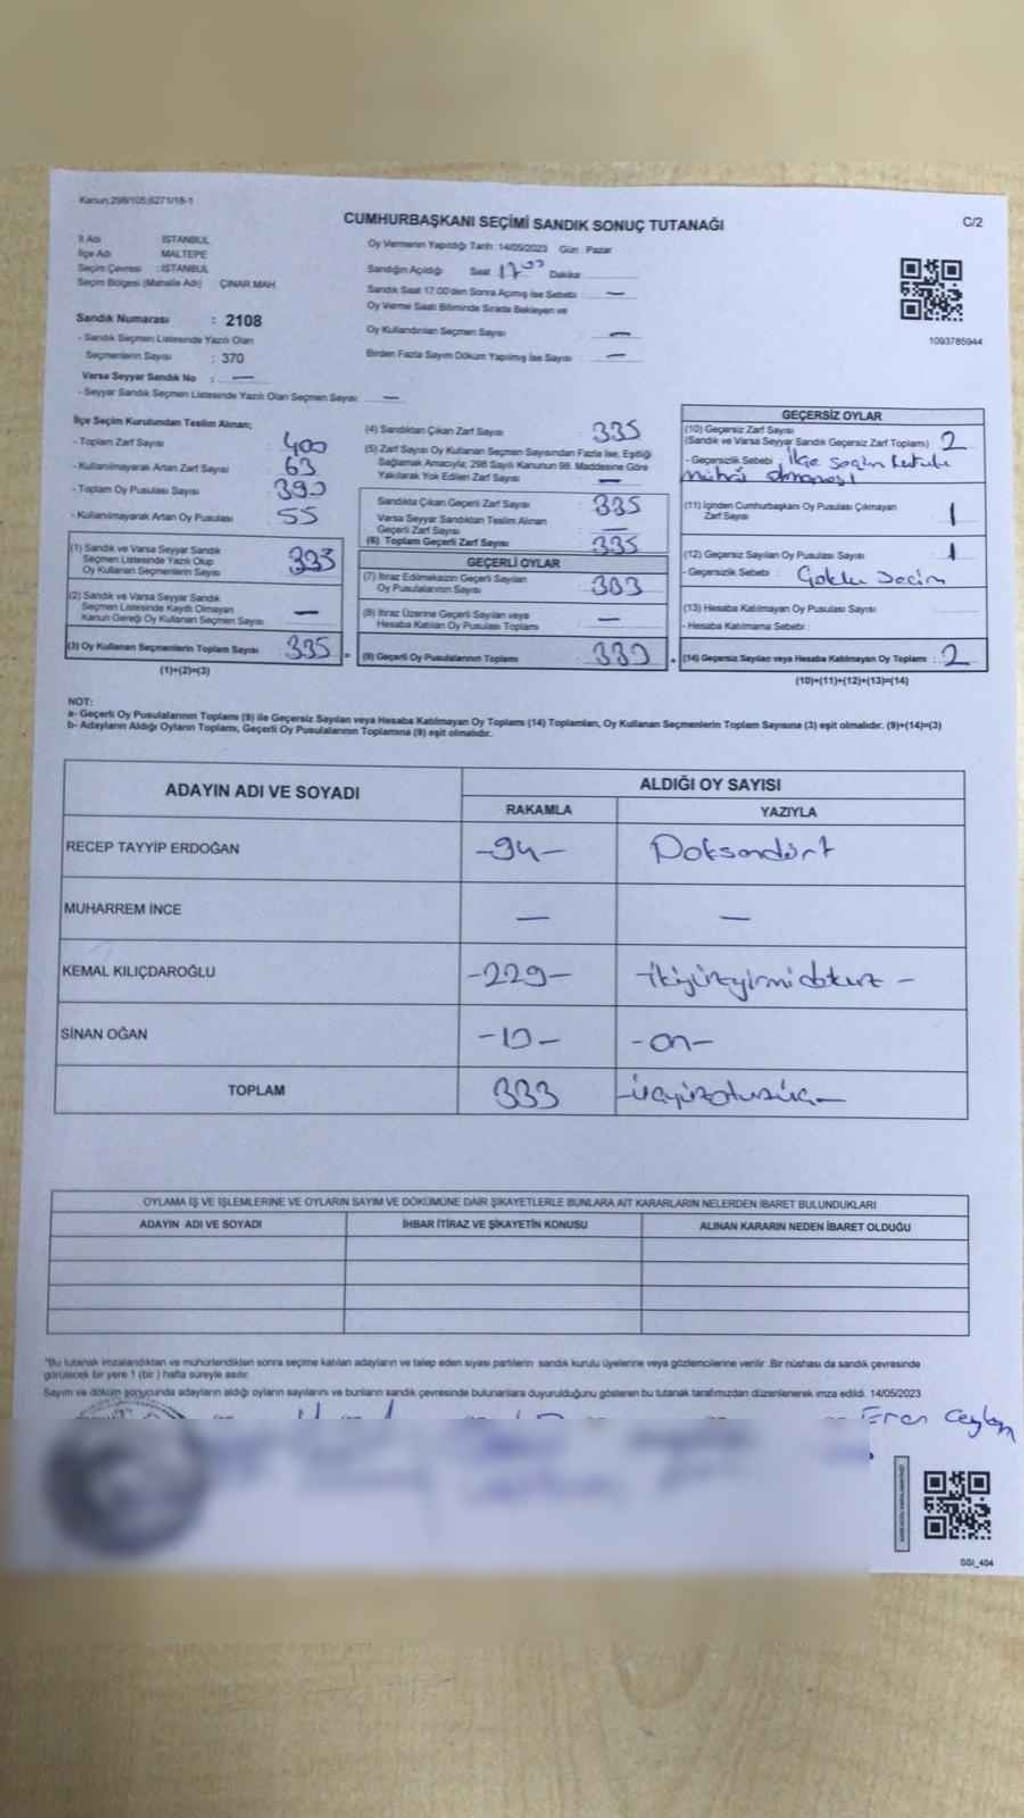 Kanun:298/105,6271/18-1
CUMHURBAŞKANI SEÇİMİ SANDIK SONUÇ TUTANAĞI
C/2
İl Adı : İSTANBUL
İlçe Adı : MALTEPE
Seçim Çevresi : İSTANBUL
Seçim Bölgesi (Mahalle Adı) ÇINAR MAH.
Oy Vermenin Yapıldığı Tarih :14/05/2023 Gün : Pazar
Sandığın Açıldığı Saat 17 00 Dakika
Sandık Saat 17.00'den Sonra Açmış İse Sebebi —
Oy Verme Saati Bitiminde Sırada Bekleyen ve
Oy Kullandırılan Seçmen Sayısı —
Birden Fazla Sayım Döküm Yapılmış İse Sayısı —
1093785944
Sandık Numarası : 2108
- Sandık Seçmen Listesinde Yazılı Olan
Seçmenlerin Sayısı : 370
Varsa Seyyar Sandık No : —
- Seyyar Sandık Seçmen Listesinde Yazılı Olan Seçmen Sayısı —
İlçe Seçim Kurulundan Teslim Alınan;
- Toplam Zarf Sayısı 400
- Kullanılmayarak Artan Zarf Sayısı 63
- Toplam Oy Pusulası Sayısı 390
- Kullanılmayarak Artan Oy Pusulası 55
(1) Sandık ve Varsa Seyyar Sandık
Seçmen Listesinde Yazılı Olup
Oy Kullanan Seçmenlerin Sayısı 335
(2) Sandık ve Varsa Seyyar Sandık
Seçmen Listesinde Kayıtlı Olmayan
Kanun Gereği Oy Kullanan Seçmen Sayısı —
(3) Oy Kullanan Seçmenlerin Toplam Sayısı 335
(1)+(2)=(3)
(4) Sandıktan Çıkan Zarf Sayısı 335
(5) Zarf Sayısı Oy Kullanan Seçmen Sayısından Fazla İse, Eşitliği
Sağlamak Amacıyla; 298 Sayılı Kanunun 98. Maddesine Göre
Yakılarak Yok Edilen Zarf Sayısı —
Sandıkta Çıkan Geçerli Zarf Sayısı 335
Varsa Seyyar Sandıktan Teslim Alınan
Geçerli Zarf Sayısı —
(6) Toplam Geçerli Zarf Sayısı 335
GEÇERLİ OYLAR
(7) İtiraz Edilmeksizin Geçerli Sayılan
Oy Pusulalarının Sayısı 333
(8) İtiraz Üzerine Geçerli Sayılan veya
Hesaba Katılan Oy Pusulası Toplamı —
(9) Geçerli Oy Pusulalarının Toplamı 333
GEÇERSİZ OYLAR
(10) Geçersiz Zarf Sayısı
(Sandık ve Varsa Seyyar Sandık Geçersiz Zarf Toplamı) 2
- Geçersizlik Sebebi : İlçe seçim kurulu
mührü olmaması
(11) İçinden Cumhurbaşkanı Oy Pusulası Çıkmayan
Zarf Sayısı 1
(12) Geçersiz Sayılan Oy Pusulası Sayısı 1
- Geçersizlik Sebebi : Çoklu Seçim
(13) Hesaba Katılmayan Oy Pusulası Sayısı
- Hesaba Katılmama Sebebi :
(14) Geçersiz Sayılan veya Hesaba Katılmayan Oy Toplamı : 2
(10)+(11)+(12)+(13)=(14)
NOT:
a- Geçerli Oy Pusulalarının Toplamı (9) ile Geçersiz Sayılan veya Hesaba Katılmayan Oy Toplamı (14) Toplamları, Oy Kullanan Seçmenlerin Toplam Sayısına (3) eşit olmalıdır. (9)+(14)=(3)
b- Adayların Aldığı Oyların Toplamı, Geçerli Oy Pusulalarının Toplamına (9) eşit olmalıdır.
ADAYIN ADI VE SOYADI
ALDIĞI OY SAYISI
RAKAMLA YAZIYLA
RECEP TAYYİP ERDOĞAN -94- Doksandört
MUHARREM İNCE — —
KEMAL KILIÇDAROĞLU -229- -ikiyüzyirmidokuz-
SİNAN OĞAN -10- -on-
TOPLAM 333 -üçyüzotuzüç-
OYLAMA İŞ VE İŞLEMLERİNE VE OYLARIN SAYIM VE DÖKÜMÜNE DAİR ŞİKAYETLERLE BUNLARA AİT KARARLARIN NELERDEN İBARET BULUNDUKLARI
ADAYIN ADI VE SOYADI İHBAR İTİRAZ VE ŞİKAYETİN KONUSU ALINAN KARARIN NEDEN İBARET OLDUĞU
*Bu tutanak imzalandıktan ve mühürlendikten sonra seçime katılan adayların ve talep eden siyasi partilerin sandık kurulu üyelerine veya gözlemcilerine verilir. Bir nüshası da sandık çevresinde
görülecek bir yere 1 (bir ) hafta süreyle asılır.
Sayım ve döküm sonucunda adayların aldığı oyların sayılarını ve bunların sandık çevresinde bulunanlara duyurulduğunu gösteren bu tutanak tarafımızdan düzenlenerek imza edildi. 14/05/2023
Eren Ceylan